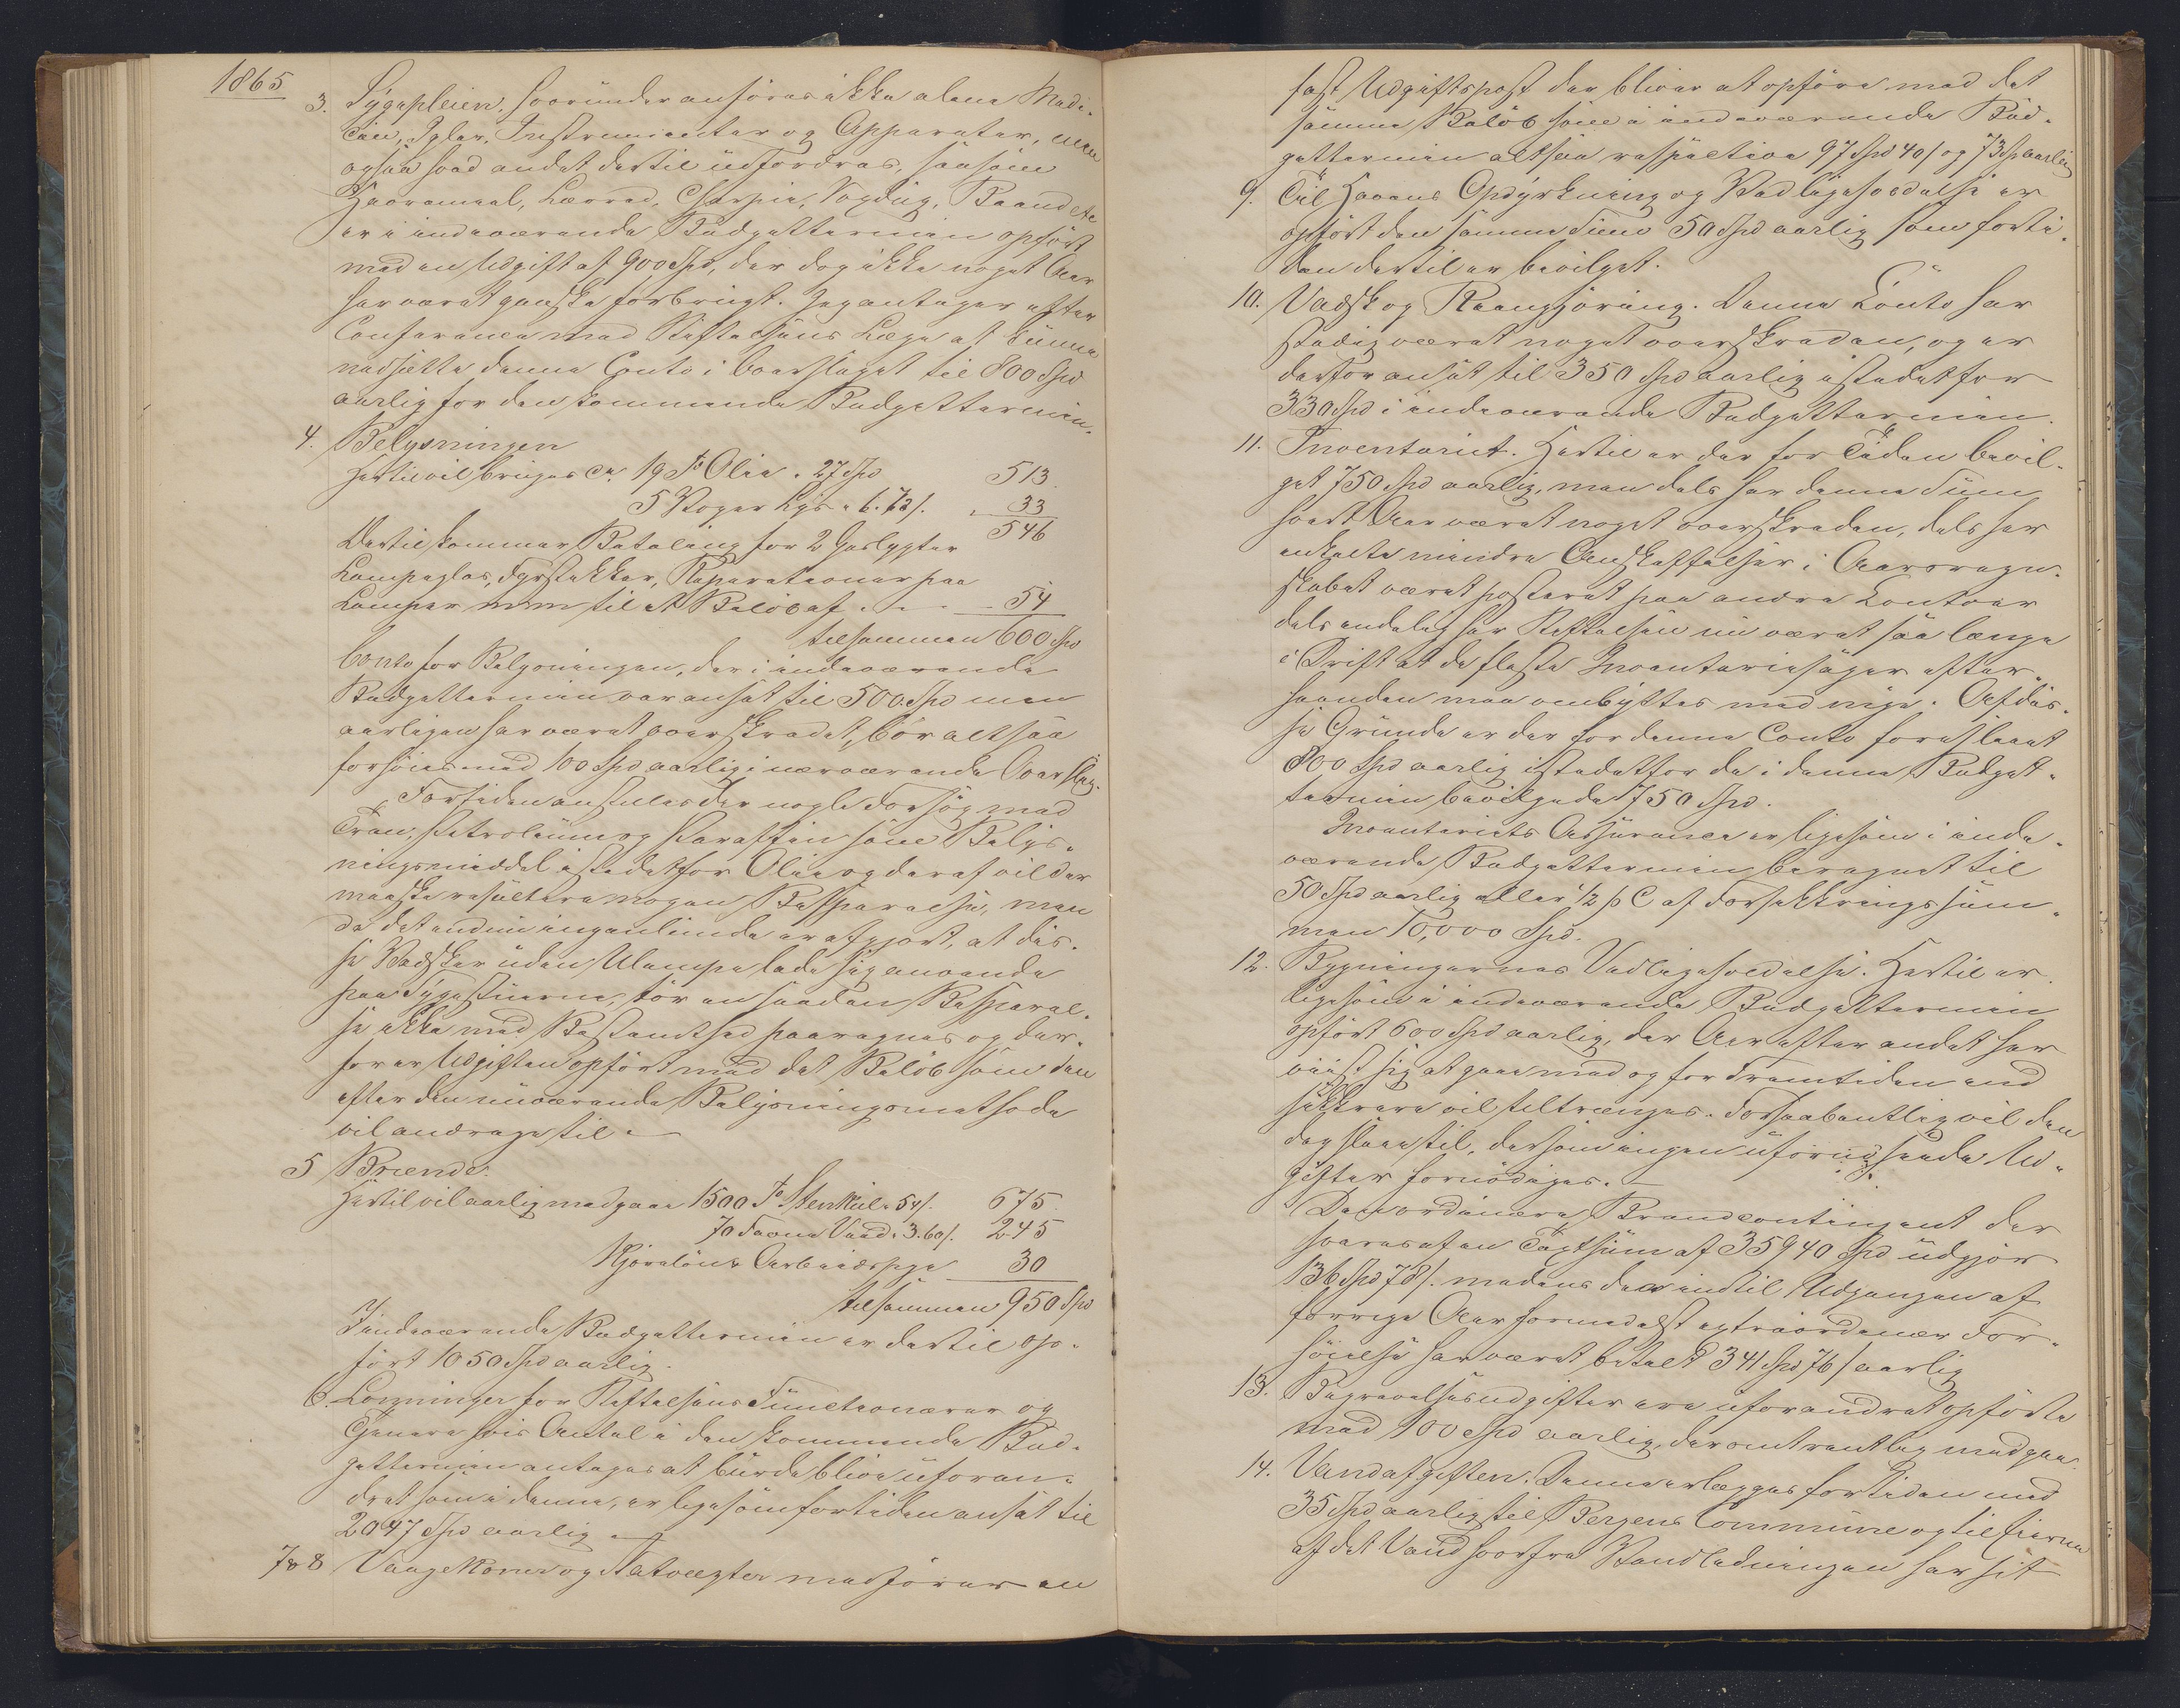 1865
3. Sygepleien, hvorunder anføres ikke alene Medi-
cin, Igler, Instrumenter og Apparater, men
ogsaa hvad andet dertil udfordres, saasom
Havremeel, Lærred, Charpie, Voxdug, Baand etc
er i indeværende Budgettermin opført
med en Udgift af 900 Spd, der dog ikke noget Aar
har været ganske forbrugt. Jeg antager efter
Conferance med Stiftelsens Læge at kunne
nedsætte denne Conto i Overslaget til 800 Spd
aarlig for den kommende Budgettermin.
4. Belysningen
Hertil vil bruges ca. 19 Td Olie a 27 Spd 513
5 Voger Lys a 6. 72 s. " 33
546
Dertil kommer Betaling for 2 Gaslygter
Lampeglas, Fyrstikker, Reparationer paa
Lamper m m til et Beløb af . . . 54
tilsammen 600 Spd
Conto for Belysningen, der i indeværende
Budgettermin var ansat til 500 Spd men
aarligen har været overskredet, bør altsaa
forhøies med 100 Spd aarlig i nærværende Overslag.
Fortiden anstilles der nogle Forsøg med
Tran, Petroleum og Paraffin som Belys-
ningsmiddel istedetfor Olie og deraf vil der
maaske resultere nogen Besparelse, men
da det endnu ingenlunde er afgjort, at dis-
se Vædsker uden Ulempe lade sig anvende
paa Sygestuerne, tør en saadan Besparel-
se ikke med Bestemthed paaregnes og der-
for er Udgiften opført med det Beløb som den
efter den nuværende Belysningsmethode
vil andrage til.
5 Brænde.
Hertil vil aarlig medgaa 1500 Td Steenkul a 54 s. 675
70 Favne Veed a 3.60 s. 245
Kjøreløn & Arbeidshjælp 30
tilsammen 950 Spd
I indeværende Budgettermin er dertil op-
ført 1050 Spd aarlig.
6. Lønninger for Stiftelsens Functionærer og
Tjenere hvis Antal i den kommende Bud-
gettermin antages at burde blive uforan-
dret som i denne, er ligesom fortiden ansat til
2047 Spd aarlig.
7 & 8 Vaagekoner og Natvægter medfører en
fast Udgiftspost der bliver at opføre med det
samme Beløb som i indeværende Bud-
gettermin altsaa respective 97 Spd 40 s og 73 Sp aarlig
9. Til Havens Opdyrkning og Vedligeholdelse er
opført den samme Sum 50 Spd aarlig som forti-
den dertil er bevilget.
10. Vadsk og Reengjøring. Denne Conto har
stadig været noget overskreden, og er
derfor ansat til 350 Spd aarlig istedetfor
330 Spd i indeværende Budgettermin.
11. Inventariet. Hertil er der for Tiden bevil-
get 750 Spd aarlig, men dels har denne Sum
hvert Aar været noget overskreden, dels har
enkelte mindre Anskaffelser i Aarsregn-
skabet været posteret paa andre Contoer
dels endelig har Stiftelsen nu været saa længe
i Drift at de fleste Inventariesager efter-
haanden maa ombyttes med nye. Af dis-
se Grunde er der for denne Conto foreslaaet
800 Spd aarlig istedetfor de i denne Budget-
termin bevilgede 750 Spd.
Inventariets Assurance er ligesom i inde-
værende Budgettermin beregnet til
50 Spd aarlig eller 1/2 p C af Forsikkringssum-
men 10,000 Spd.
12. Bygningernes Vedligeholdelse. Hertil er
ligesom i indeværende Budgettermin
opført 600 Spd aarlig, der Aar efter andet har
viist sig at gaa med og for Fremtiden end
sikkrere vil tiltrænges. Forhaabentlig vil den
dog slaae til, dersom ingen uforudseede Ud-
gifter fornødiges.
Den ordinære Brandcontingent der
svares af en Taxtsum af 35940 Spd udgjør
136 Spd 78 s. medens der indtil Udgangen af
forrige Aar formedelst extraordinær For-
høielse har været betalt 341 Spd 76 s aarlig
13. Begravelsesudgifter ere uforandret opførte
med 100 Spd aarlig, der omtrentlig medgaa.
14. Vandafgiften. Denne erlægges for Tiden med
35 Spd aarlig til Bergens Commune og til Eierne
af det Vand hvorfra Vandledningen har sit